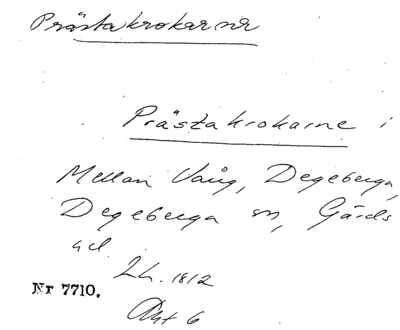 Prästakrokarne
Prästakrokarne i
Mellan Vång, Degeberga,
Degeberga sn, Gärds
hd.
Lh. 1812
Nr 7710.
Akt 6